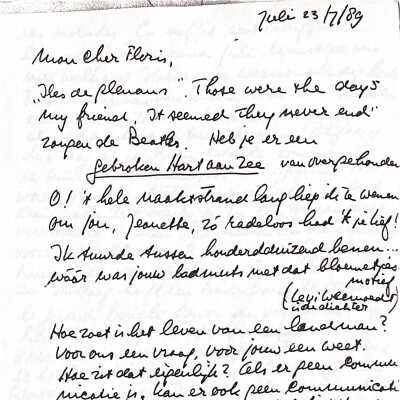 Juli 23/7/89
Mon cher Floris,
"Iles de plenans". Those were the days
my friend. It seemed they never end"
zongen de Beatles. Heb je er een
gebroken Hart aan Zee van overgehouden
O! 't hele naaktstrand lang liep ik te wenen
om jou, Jeanette, zó radeloos had 'k je lief!
Ik tuurde tussen honderdduizend benen...
wáár was jouw badmuts met dat bloemetjes
motief
(Levi Weemoedt
is de dichter
Hoe zoet is het leven van een landman?
Voor ons een vraag, voor jouw een weet.
Hoe zit dat eigenlijk? Als er geen commu
nicatie is, kan er ook geen communicati